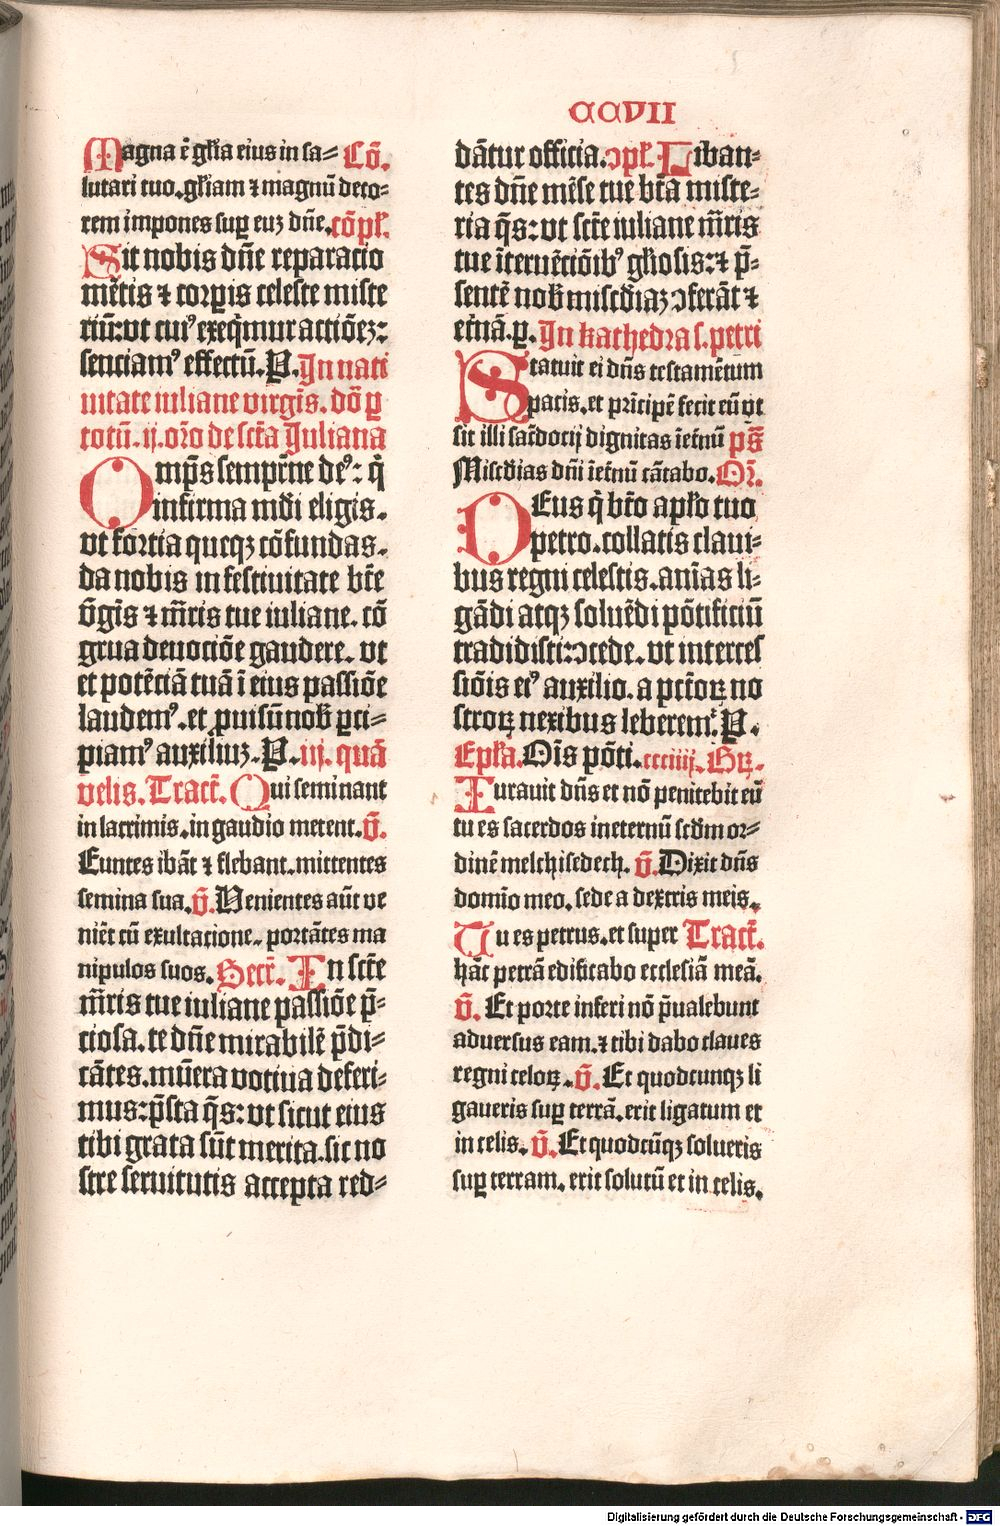 CCVII
Magna ē gl̄ia eius in sa= Cō.
lutari tuo. gl̄iam ⁊ magnū deco=
rem impones suꝑ euʒ dn̄e. cōpl̄.
Sit nobis dn̄e reparacio
mētis ⁊ corꝑis celeste miste
riū: vt cuiꝰ exeq̄mur actiōeʒ:
senciamꝰ effectū. P. In nati
uitate iuliane virgīs. dō ꝑ
totū. ij. or̄o de sct̄a Juliana
Omp̄s sempit̄ne deꝰ: q̄
infirma mūdi eligis.
vt fortia quecqʒ cōfundas.
da nobis in festiuitate bt̄e
v̄gīs ⁊ m̄ris tue iuliane. cō
grua deuociōe gaudere. vt
et potēciā tuā ī eius passiōe
laudemꝰ. et ꝓuisū nob̄ ꝑci=
piamꝰ auxiliuʒ. P. iij. quā
velis. Tract̄. Qui seminant
in lacrimis. in gaudio metent. v̄.
Euntes ibāt ⁊ flebant. mittentes
semina sua. v̄. Venientes aūt ve
niēt cū exultacione. portātes ma
nipulos suos. Secr̄. In sct̄e
m̄ris tue iuliane passiōe p̄=
ciosa. te dn̄e mirabilē p̄di=
cātes. mūera votiua deferi=
mus: p̄sta q̄s: vt sicut eius
tibi grata sūt merita. sic no
stre seruitutis accepta red=
dātur officia. ɔpl̄. Liban=
tes dn̄e mēse tue bt̄a miste=
ria q̄s: vt sct̄e iuliane m̄ris
tue īteruēciōibꝰ gl̄iosis: ⁊ p̄=
sentē nob̄ misc̄diaʒ ɔferāt ⁊
et̄nā. ꝑ. In kathedra s. petri
Statuit ei dn̄s testamētum
pacis. et prīcipē fecit eū vt
sit illi sac̄docij dignitas īet̄nū p̄s
Misc̄dias dn̄i īet̄nū cātabo. Or̄.
DEus q̄ bt̄o apl̄o tuo
petro. collatis claui=
bus regni celestis. anīas li=
gādi atqʒ soluēdi pōtificiū
tradidisti: ɔcede. vt interces
siōis eiꝰ auxilio. a pct̄oꝝ no
stroꝝ nexibus leberemꝰ. P.
Epl̄a. Om̄s pōti. ccciiij. Gꝝ.
Iurauit dn̄s et nō penitebit eū
tu es sacerdos ineternū scd̄m or=
dinē melchisedech. v̄. Dixit dn̄s
domīo meo. sede a dextris meis.
Tu es petrus. et super Tract̄.
hāc petrā edificabo ecclesiā meā.
v̄. Et porte inferi nō p̄ualebunt
aduersus eam. ⁊ tibi dabo claues
regni celoꝝ. v̄. Et quodcunqʒ li
gaueris suꝑ terrā. erit ligatum et
in celis. v̄. Et quodcūqʒ solueris
suꝑ terram. erit solutū et in celis.
Digitalisierung gefördert durch die Deutsche Forschungsgemeinschaft - DFG